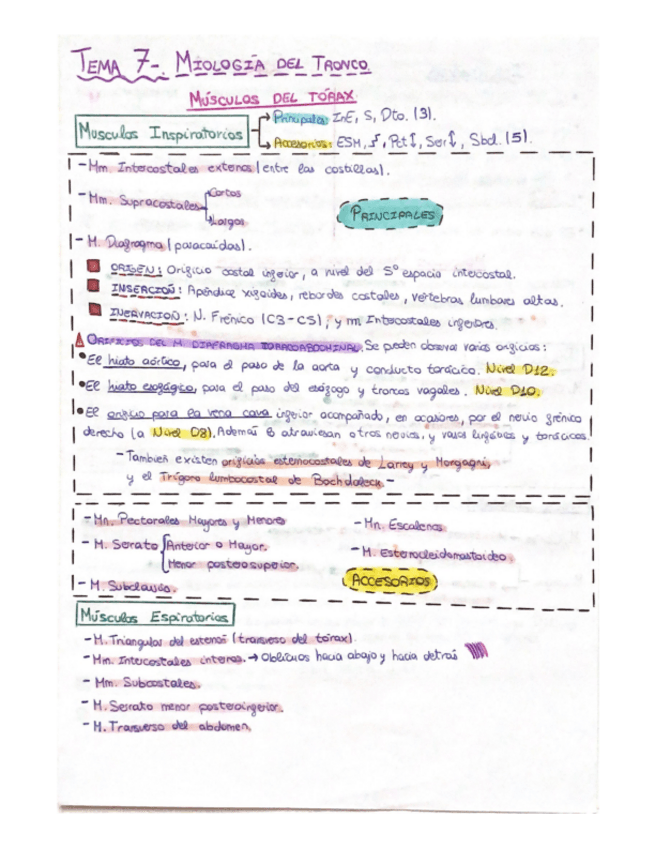 TEMA 7-. MIOLOGÍA DEL TRONCO
MÚSCULOS DEL TÓRAX
Musculos Inspiratorios
→ Principales: InE, S, Dto. (3).
→ Accesorios: ESM, Pct↓, Ser↓, Sbcl. (5).
- Mm. Intercostales externos (entre las costillas).
- Mm. Supracostales
Cortos
Largos
PRINCIPALES
- M. Diafragma (paracaidas).
ORIGEN: Orificio costal inferior, a nivel del 5º espacio intercostal.
INSERCIÓN: Apéndice xifoides, rebordes costales, vértebras lumbares altas.
INERVACIÓN: N. Frénico (C3-C5), y nn Intercostales inferiores.
ORIFICIOS DEL M. DIAFRAGMA TORACOABDOMINAL. Se pueden observar varios orificios:
• El hiato aórtico, para el paso de la aorta y conducto torácico. Nivel D12.
• El hiato esofágico, para el paso del esófago y troncos vagales. Nivel D10.
• El orificio para la vena cava inferior acompañado, en ocasiones, por el nervio frénico
derecho (a Nivel D8). Además atraviesan otros nervios, y vasos linfáticos y torácicos.
- Tambien existen orificios esternocostales de Larrey y Morgagni,
y el Trígono lumbocostal de Bochdaleck -
- Mn. Pectorales Mayores y Menores
- Mn. Escalenos
- M. Serrato
Anterior o Mayor.
Menor posterosuperior.
- M. Esternocleidomastoideo.
- M. Subclavio.
ACCESORIOS
Músculos Espiratorios
- M. Triangular del esternón (transverso del tórax).
- Mm. Intercostales internos. → Oblicuos hacia abajo y hacia detrás
- Mm. Subcostales.
- M. Serrato menor posteroinferior.
- M. Transverso del abdomen.